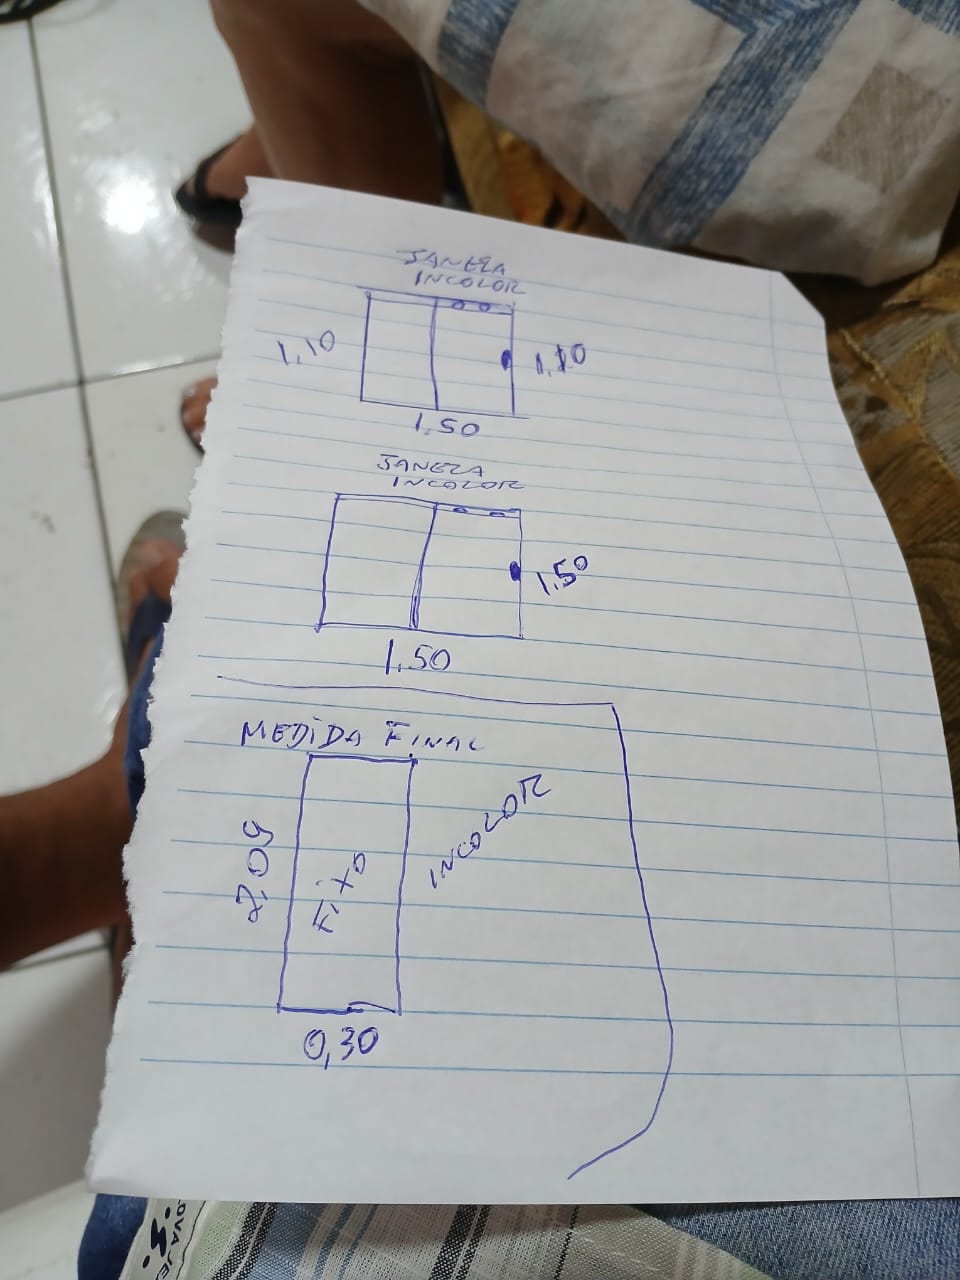 JANELA
INCOLOR
1,10
1,10
1,50
JANELA
INCOLOR
1,50
1,50
MEDIDA FINAL
2,09
FiXO
INCOLOR
0,30